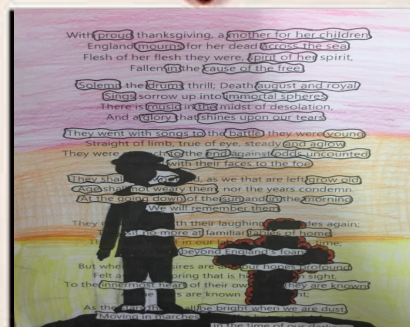 With proud thanksgiving, a mother for her children,
England mourns for her dead across the sea.
Flesh of her flesh they were, spirit of her spirit,
Fallen in the cause of the free.
Solemn the drums thrill; Death august and royal
Sings sorrow up into immortal spheres,
There is music in the midst of desolation
And a glory that shines upon our tears.
They went with songs to the battle, they were young,
Straight of limb, true of eye, steady and aglow.
They were to the end against odds uncounted;
with their faces to the foe.
They shall as we that are left grow old:
Age shall not weary them, nor the years condemn.
At the going down of the sun and in the morning
We will remember them.
They with their laughing again;
no more at familiar of home;
in our time;
beyond England's foam
But where ires are our hopes profound,
Felt as a ring that is from sight,
To the innermost heart of their own they are known
are known
As the shall be bright when we are dust,
Moving in marches
in the time of our